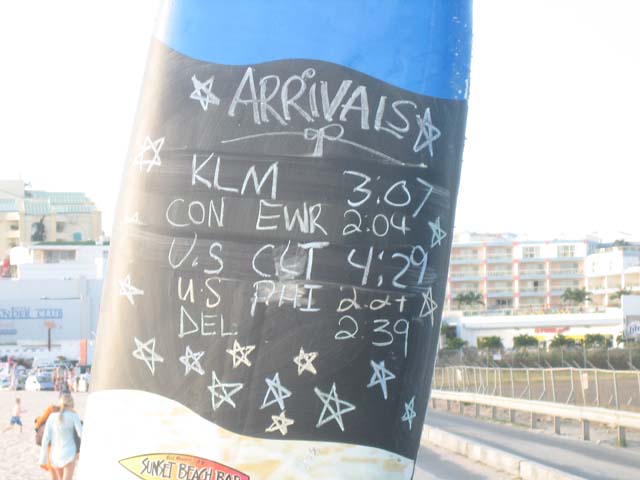 ARRIVALS
KLM 3:07
CON EWR 2:04
U.S CLT 4:29
U.S PHI 2:27
DEL 2:39
SUNSET BEACH BAR